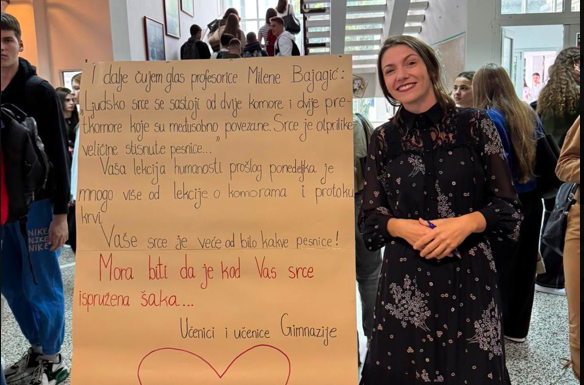 I dalje čujem glas profesorice Milene Bajagić:
„Ljudsko srce se sastoji od dvije komore i dvije pre-
tkomore koje su međusobno povezane. Srce je otprilike
veličine stisnute pesnice..."
Vaša lekcija humanosti prošlog ponedeljka je
mnogo više od lekcije o komorama i protoku
krvi.
Vaše srce je veće od bilo kakve pesnice!
Mora biti da je kod Vas srce
ispružena šaka...
Učenici i učenice Gimnazije
NIKE